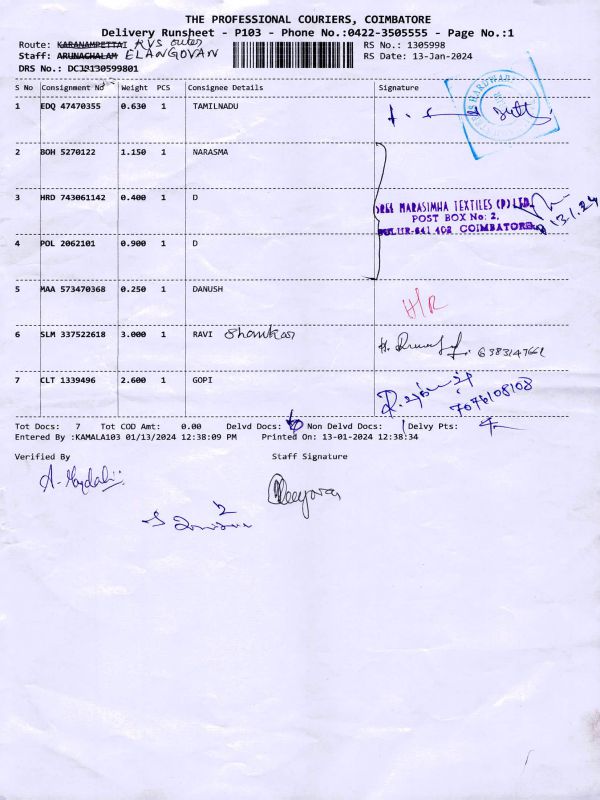 THE PROFESSIONAL COURIERS, COIMBATORE
Delivery Runsheet - P103 - Phone No.:0422-3505555 - Page No.:1
Route: KARANAMPRETTAI RVS outer
RS No.: 1305998
Staff: ARUNACHALAM ELANGOVAN
RS Date: 13-Jan-2024
DRS No.:
S No Consignment No Weight PCS Consignee Details Signature
1 EDQ 47470355 0.630 1 TAMILNADU
2 BOH 5270122 1.150 1 NARASMA
3 HRD 743061142 0.400 1 D
SREE NARASIMHA TEXTILES (P) LTD.
POST BOX No: 2,
SULUR-641 402 COIMBATORE
13.1.24
4 POL 2062101 0.900 1 D
5 MAA 573470368 0.250 1 DANUSH
H/R
6 SLM 337522618 3.000 1 RAVI Shankar
6383147661
7 CLT 1339496 2.600 1 GOPI
7076108108
Tot Docs: 7 Tot COD Amt: 0.00 Delvd Docs: Non Delvd Docs: 1 Delvy Pts:
Entered By :KAMALA103 01/13/2024 12:38:09 PM Printed On: 13-01-2024 12:38:34
Verified By Staff Signature